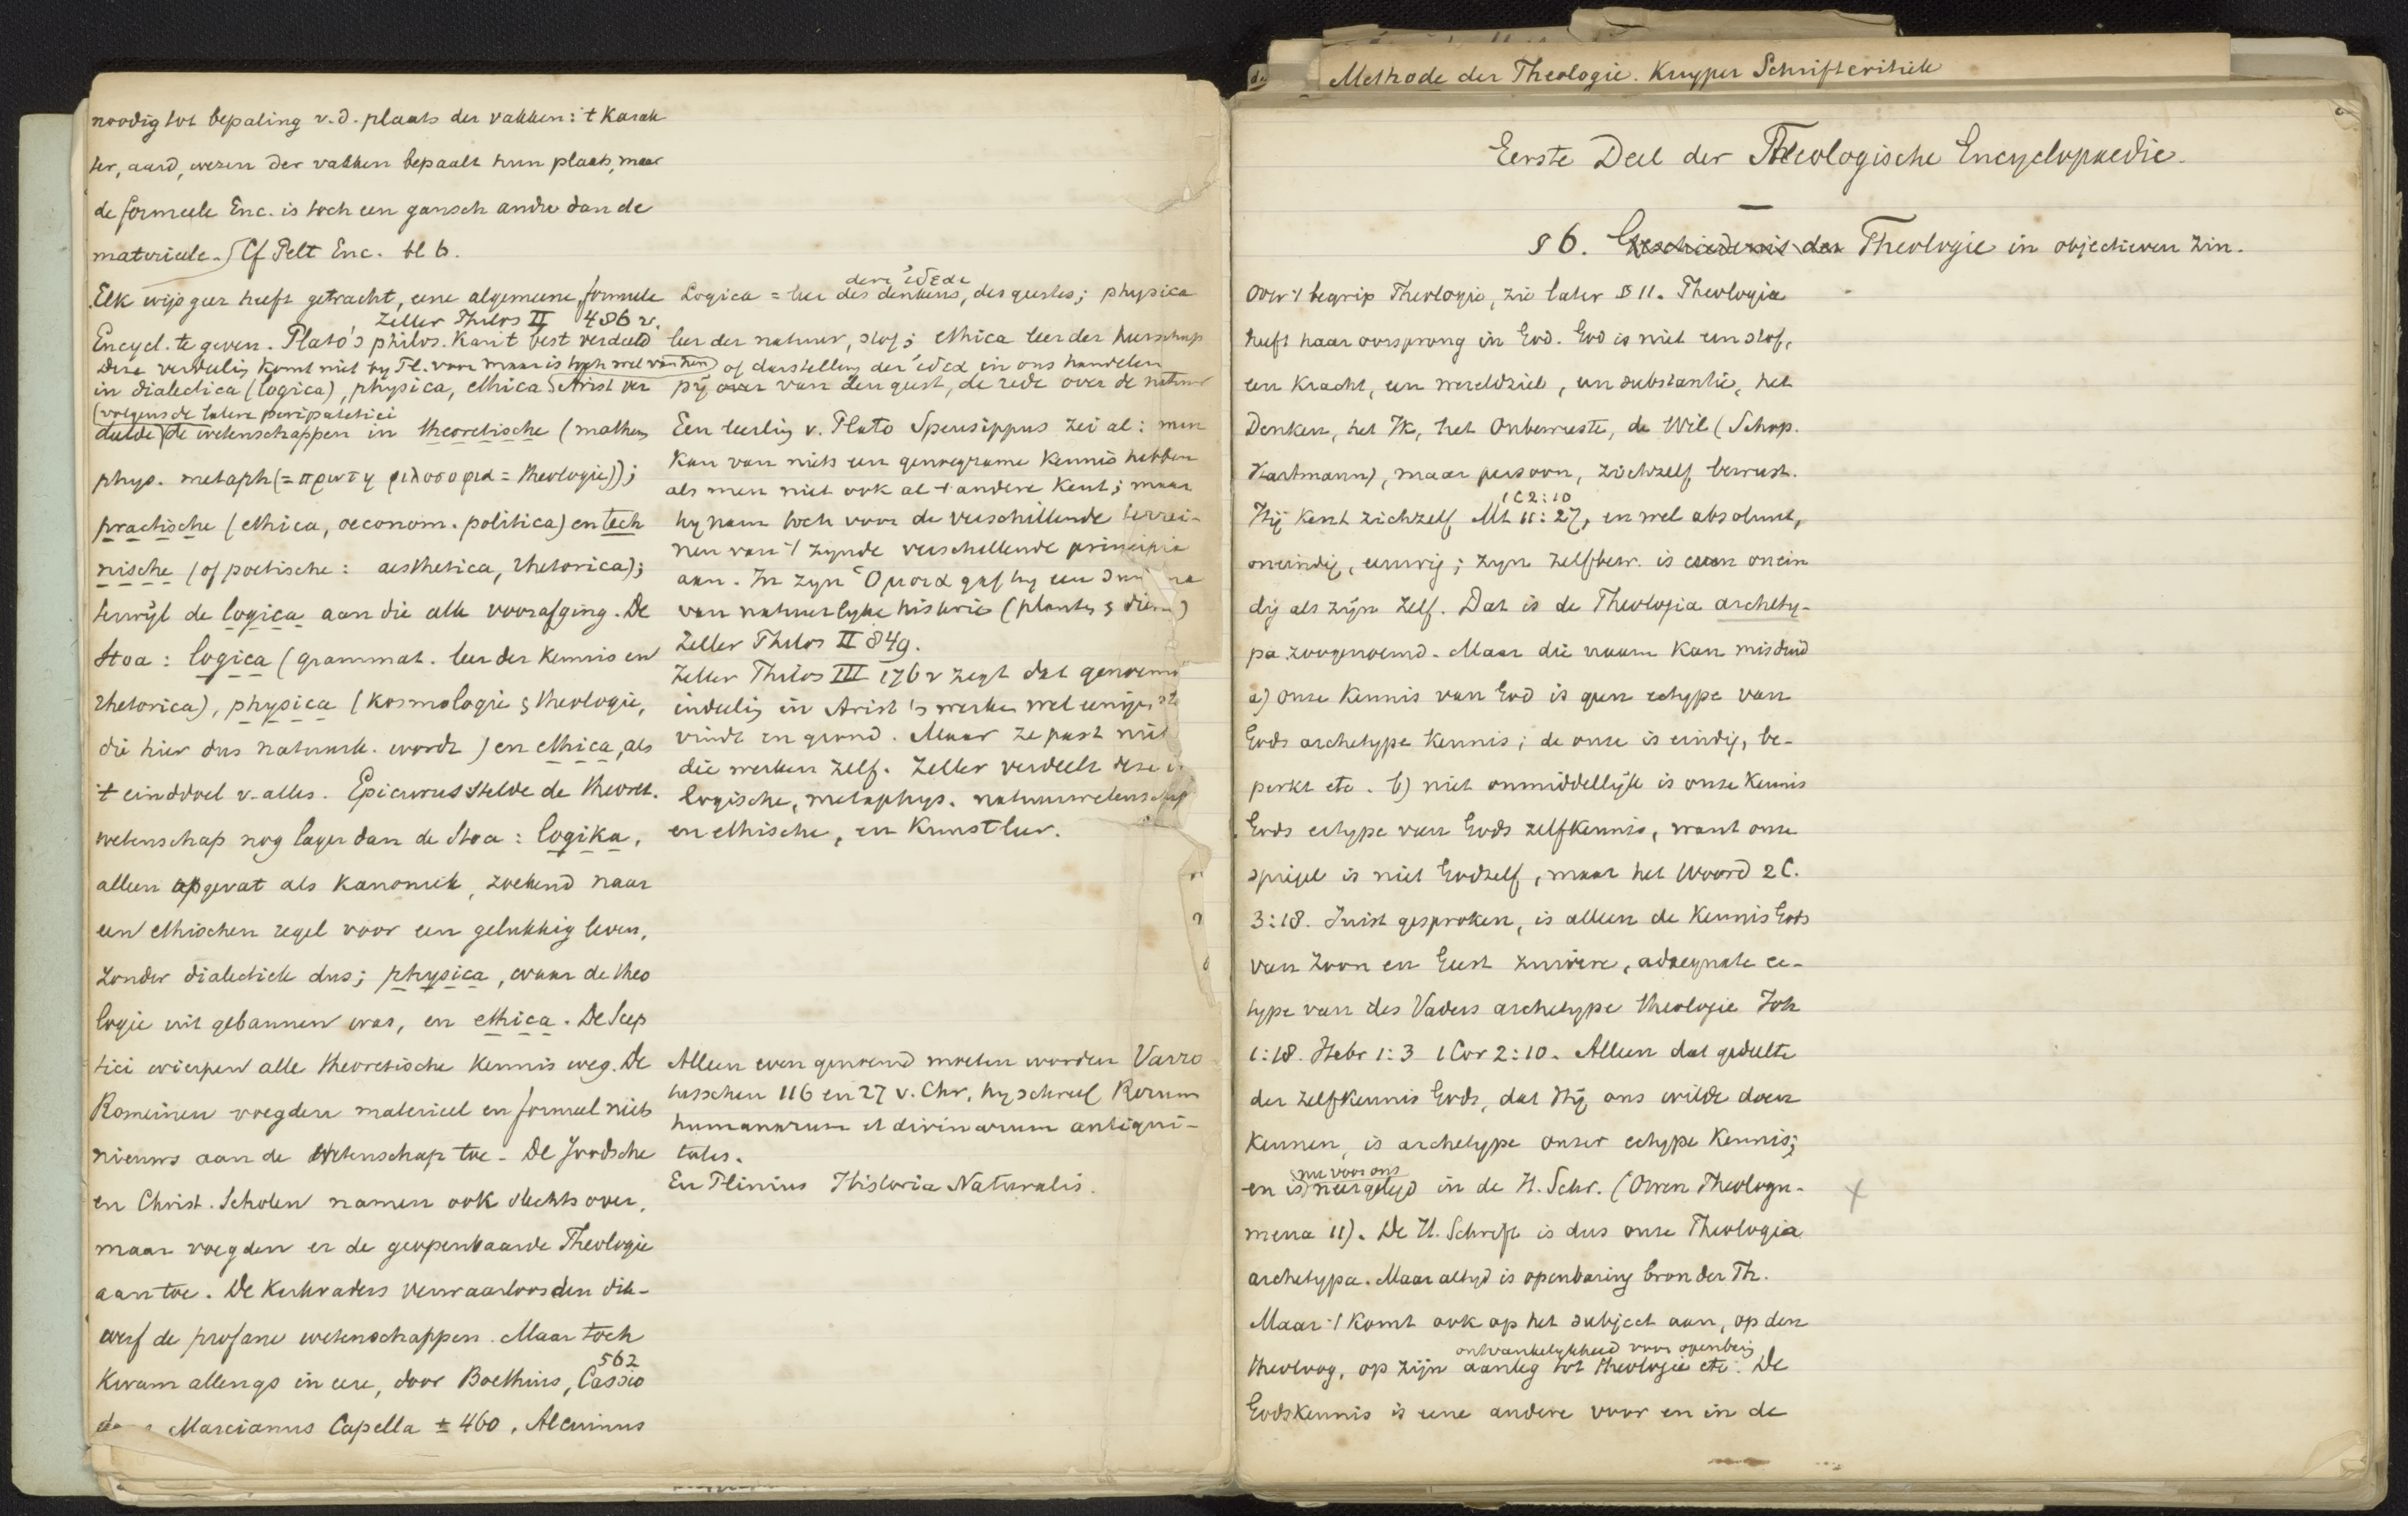 noodig tot bepaling v.d. plaats der vakken: 't Karak
ter, aard, wezen der vakken bepaalt hun plaats, maar
de formeele Enc. is toch een gansch andre dan de
materieele. Cf Pelt Enc. bl 6.
Elk wijsgeer heeft getracht, eene algemeene, formeele
Zeller Philos II 486 v.
Encycl. te geven. Plato's philos. kan 't best verdeeld
Deze verdeeling komt niet by Pl. voor maar is toch wel van hem
in dialectica (logica), physica, ethica. Arist ver
(volgens de latere peripatetici
deelde) de wetenschappen in theoretische (mathem
phys. metaph (= πρωτη φιλοσοφια = theologie));
practische (ethica, oeconom. politica) en tech
nische (of poetische: aesthetica, rhetorica);
terwijl de logica aan die alle voorafging. De
Stoa: logica (grammat. leer der kennis en
rhetorica), physica (kosmologie & theologie,
die hier dus natuurk. wordt) en ethica, als
't einddoel v. alles. Epicurus stelde de theoret.
wetenschap nog lager dan de Stoa: logika,
alleen opgevat als kanoniek, zoekend naar
een ethischen regel voor een gelukkig leven,
zonder dialectiek dus; physica, waar de theo
logie uit gebannen was, en ethica. De Scep
tici wierpen alle theoretische kennis weg. De
Romeinen voegden materieel en formeel niets
nieuws aan de wetenschap toe. De Joodsche
en Christ. Scholen namen ook slechts over,
maar voegden er de geopenbaarde Theologie
aan toe. De Kerkvaders verwaarloosden dik-
werf de profane wetenschappen. Maar toch
562
Kwam allengs in eere, door Boethius, Cassio
Marcianus Capella ± 460, Alcuinus
der ἰδεαι
Logica = leer des denkens, des geestes; physica
leer der natuur, stof; ethica leer der heerschap
of darstelling der ἰδεα in ons handelen
pij over van den geest, de rede over de natuur
Een leerling v. Plato Speusippus zei al: men
kan van niets een genoegzame kennis hebben
als men niet ook al 't andere kent; maar
hy nam toch voor de verschillende terrei-
nen van 't zynde verschillende principia
aan. In zyn Ὁμοια gaf hy een
van natuurlyke historie (planten & dieren)
Zeller Philos II 849.
Zeller Philos III 176 v zegt dat genoemd
indeeling in Arist's werken wel eenigen
vindt en grond. Maar ze past niet
die werken zelf. Zeller verdeelt deze
logische, metaphys. natuurwetenschap
en ethische, en Kunstleer.
Alleen even genoemd moeten worden Varro
tusschen 116 en 27 v. Chr, hy schreef Rerum
humanarum et divinarum antiqui-
tates.
En Plinius Historia Naturalis.
Methode der Theologie. Kuyper Schriftcritiek
Eerste Deel der Theologische Encyclopaedie.
§ 6. Geschiedenis der Theologie in objectieven zin.
Over 't begrip Theologie, zie later § 11. Theologie
heeft haar oorsprong in God. God is niet een stof,
een Kracht, een wereldziel, een substantie, het
Denken, het Ik, het Onbewuste, de Wil (Schop.
Hartmann), maar persoon, zichzelf bewust.
1 C 2:10
Hij kent zichzelf Mt 11:27, en wel absoluut,
oneindig, eeuwig; zijn zelfbew. is even onein
dig als zijn Zelf. Dat is de Theologia archety-
pa zoogenoemd. Maar die naam kan misduid
a) onze kennis van God is geen ectype van
Gods archetype kennis; de onze is eindig, be-
perkt etc. b) niet onmiddellijk is onze kennis
Gods ectype van Gods zelfkennis, want onze
spiegel is niet Godzelf, maar het Woord 2 C.
3:18. Juist gesproken, is alleen de kennis Gods
van Zoon en Geest zuivere, adaequate ec-
type van des Vaders archetype theologie Joh
1:18. Hebr 1:3 1 Cor 2:10. Alleen dat gedeelte
der zelfkennis Gods, dat Hij ons wilde doen
kennen, is archetype onzer ectype kennis;
nu voor ons
en is neergelegd in de H. Schr. (Owen Theologu-
mena 11). De H. Schrift is dus onze Theologia
archetypa. Maar altyd is openbaring bron der Th.
Maar 't komt ook op het subject aan, op den
ontvankelykheid voor openbring
theoloog, op zijn aanleg tot theologie etc. De
Godskennis is eene andere voor en in de